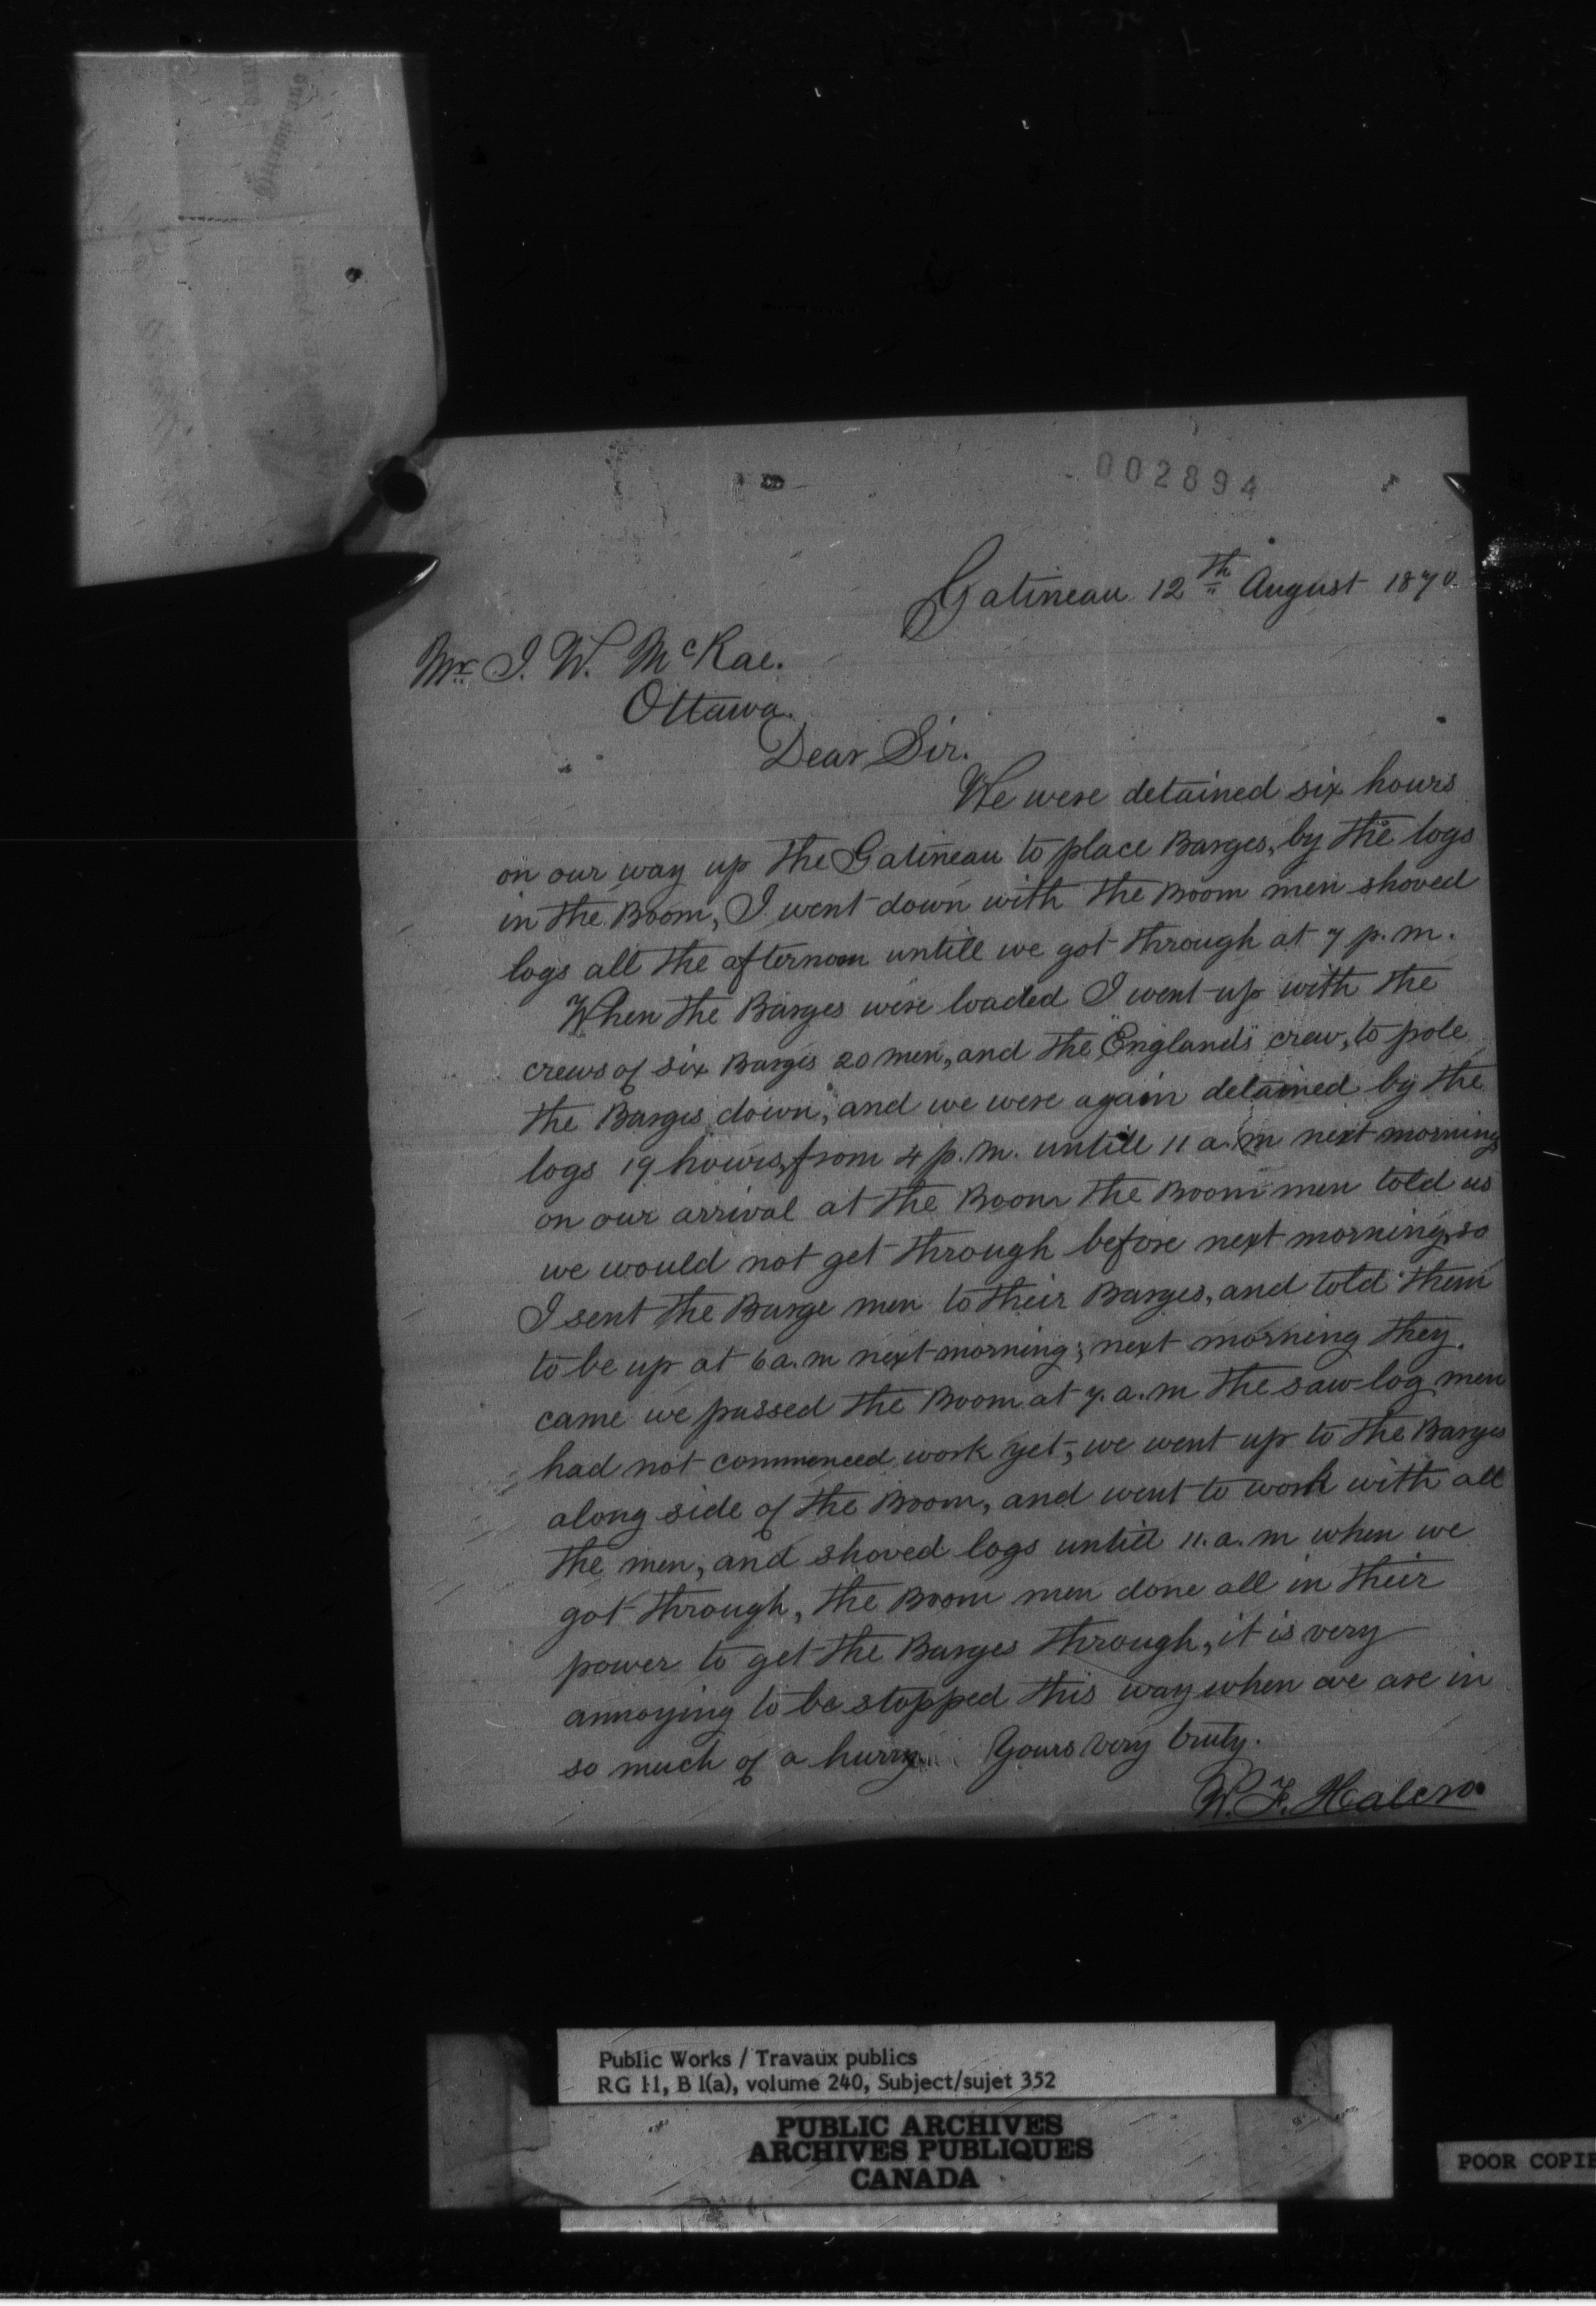 002894
Gatineau 12th August 1870
Mr. I. W. McRae.
Ottawa.
Dear Sir.
We were detained six hours
on our way up the Gatineau to place Barges, by the logs
in the Boom, I went down with the Boom men shoved
logs all the afternoon untill we got through at 7 p.m.
When the Barges were loaded I went up with the
crews of six Barges 20 men, and the "England's" crew, to pole
the Barges down, and we were again detained by the
logs 19 hours, from 4 p.m. untill 11 a.m next morning
on our arrival at the Boom the Boom men told us
we would not get through before next morning, so
I sent the Barge men to their Barges, and told them
to be up at 6 a.m next morning; next morning they
came we passed the Boom at 7.a.m the saw-log men
had not commenced work yet, we went up to the Barges
along side of the Boom, and went to work with all
the men, and shoved logs untill 11.a.m when we
got through, the Boom men done all in their
power to get the Barges through, it is very
annoying to be stopped this way when we are in
so much of a hurry Yours very truly.
W. F.
Public Works / Travaux publics
RG 11, B 1(a), volume 240, Subject/sujet 352
PUBLIC ARCHIVES
ARCHIVES PUBLIQUES
CANADA
POOR COPIE